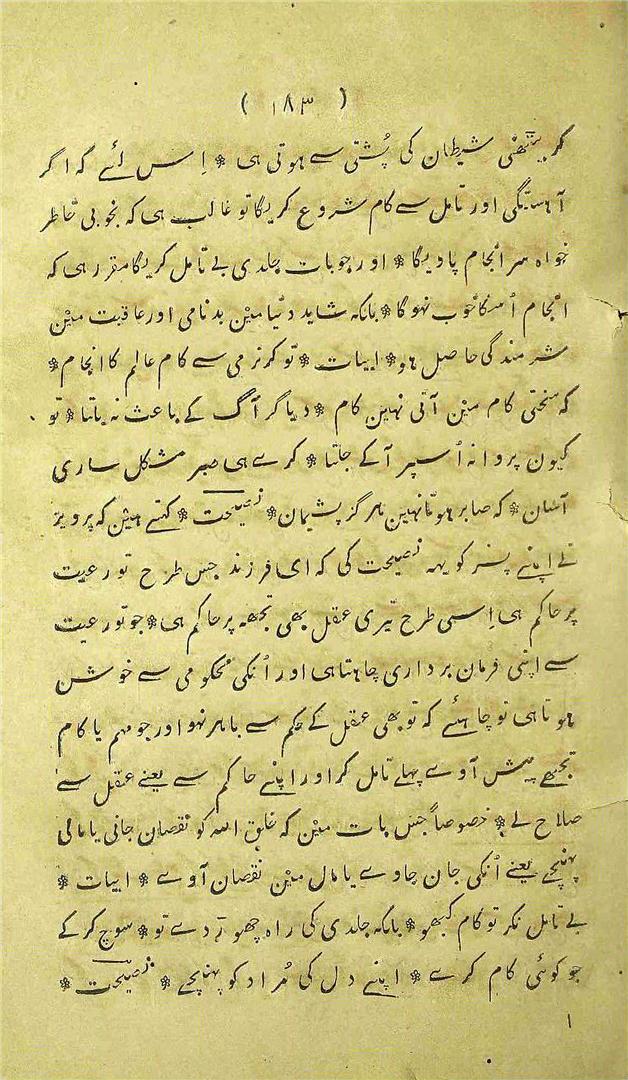 ( ۱۸۳ )
کر بیٹھنی شیطان کی پُشتی سے ہوتی ہی * اِس لئے کہ اگر
آہستگی اور تامل سے کام شروع کریگا تو غالب ہی کہ بخوبی خاطر
خواہ سر انجام پاویگا * اور جو بات جلدی بے تامل کریگا مقرر ہی کہ
انجام اُسکا خوب نہوگا * بلکہ شاید دنیا مین بدنامی اور عاقبت مین
شرمندگی حاصل ہو * ابیات * تو کر نرمی سے کام عالم کا انجام *
کہ سختی کام مین آتی نہین کام * دیا گر آگ کے باعث نہ پاتا * تو
کیون پروانہ اُسپر آکے جلتا * کرے ہی صبر مشکل ساری
آسان * کہ صابر ہوتا نہین ہرگز پشیمان * نصیحت * کہتے ہین کہ پرویز
نے اپنے پسر کو یہہ نصیحت کی کہ ای فرزند جس طرح تو رعیت
پر حاکم ہی اِسی طرح تیری عقل بھی تجھہ پر حاکم ہی * جو تو رعیت
سے اپنی فرمان برداری چاہتا ہی اور اُنکی محکومی سے خوش
ہوتا ہی تو چاہئے کہ تو بھی عقل کے حکم سے باہر نہو اور جو مہم یا کام
تجھے پیش آوے پہلے تامل کر اور اپنے حاکم سے یعنے عقل سے
صلاح لے * خصوصاً جس بات مین کہ خلق اللہ کو نقصان جانی یا مالی
پہنچے یعنے اُنکی جان جاوے یا مال مین نقصان آوے * ابیات *
بے تامل نکر تو کام کبھو * بلکہ جلدی کی راہ چھوڑ دے تو * سوچ کر کے
جو کوئی کام کرے * اپنے دل کی مُراد کو پہنچے * نصیحت *
۱